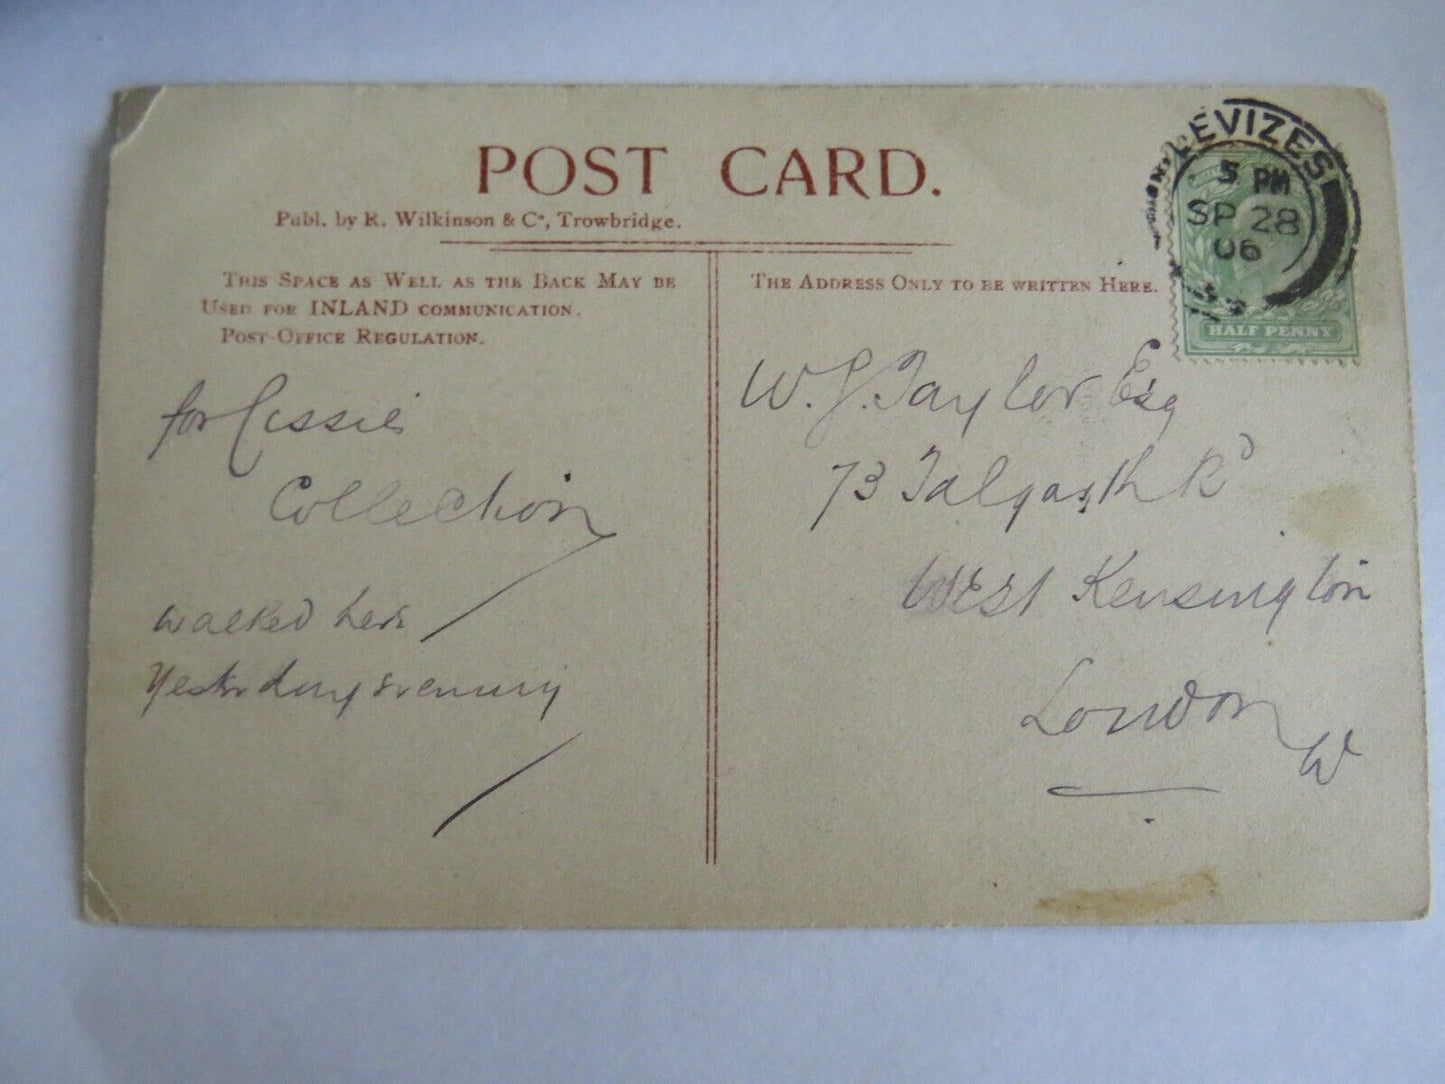 POST CARD.
Publ. by R. Wilkinson & Co, Trowbridge.
THIS SPACE AS WELL AS THE BACK MAY BE
USED FOR INLAND COMMUNICATION.
POST-OFFICE REGULATION.
for Cissie
Collection
walked here
Yesterday evening
THE ADDRESS ONLY TO BE WRITTEN HERE.
DEVIZES
5 PM
SP 28
06
HALF PENNY
W. J. Taylor Esq
73 Talgarth Rd
West Kensington
London
W